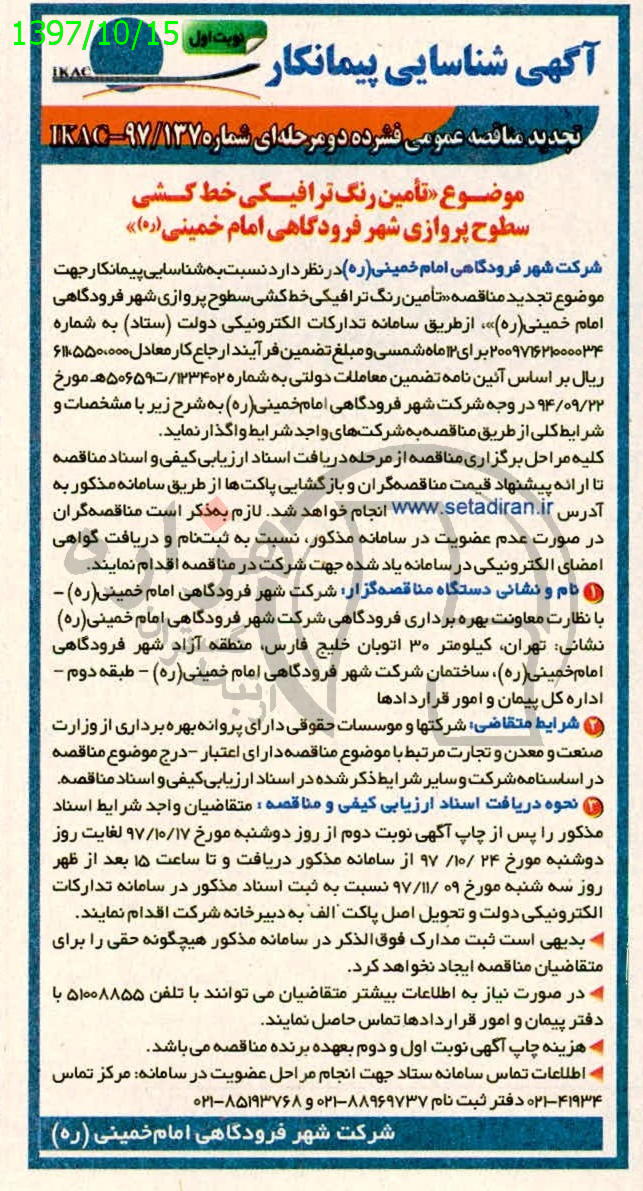 1397/10/15
نوبت اول
IKAC
آگهی شناسایی پیمانکار
تجدید مناقصه عمومی فشرده دو مرحله‌ای شماره IKAC-۹۷/۱۳۷
موضوع «تأمین رنگ ترافیکی خط کشی
سطوح پروازی شهر فرودگاهی امام خمینی(ره)»
شرکت شهر فرودگاهی امام خمینی(ره) در نظر دارد نسبت به شناسایی پیمانکار جهت
موضوع تجدید مناقصه «تأمین رنگ ترافیکی خط کشی سطوح پروازی شهر فرودگاهی
امام خمینی(ره)»، ازطریق سامانه تدارکات الکترونیکی دولت (ستاد) به شماره
۲۰۰۹۷۱۶۲۱۰۰۰۰۳۴ برای ۱۲ ماه شمسی و مبلغ تضمین فرآیند ارجاع کار معادل ۶۱۱،۵۵۰،۰۰۰
ریال بر اساس آئین نامه تضمین معاملات دولتی به شماره ۱۲۳۴۰۲/ت۵۰۶۵۹هـ مورخ
۹۴/۰۹/۲۲ در وجه شرکت شهر فرودگاهی امام‌خمینی(ره) به شرح زیر با مشخصات و
شرایط کلی از طریق مناقصه به شرکت‌های واجد شرایط واگذار نماید.
کلیه مراحل برگزاری مناقصه از مرحله دریافت اسناد ارزیابی کیفی و اسناد مناقصه
تا ارائه پیشنهاد قیمت مناقصه‌گران و بازگشایی پاکت‌ها از طریق سامانه مذکور به
آدرس www.setadiran.ir انجام خواهد شد. لازم به‌ذکر است مناقصه‌گران
در صورت عدم عضویت در سامانه مذکور، نسبت به ثبت‌نام و دریافت گواهی
امضای الکترونیکی در سامانه یاد شده جهت شرکت در مناقصه اقدام نمایند.
۱ نام و نشانی دستگاه مناقصه‌گزار: شرکت شهر فرودگاهی امام خمینی(ره) –
با نظارت معاونت بهره برداری فرودگاهی شرکت شهر فرودگاهی امام خمینی(ره)
نشانی: تهران، کیلومتر ۳۰ اتوبان خلیج فارس، منطقه آزاد شهر فرودگاهی
امام‌خمینی(ره)، ساختمان شرکت شهر فرودگاهی امام خمینی(ره) – طبقه دوم –
اداره کل پیمان و امور قراردادها
۲ شرایط متقاضی: شرکتها و موسسات حقوقی دارای پروانه بهره برداری از وزارت
صنعت و معدن و تجارت مرتبط با موضوع مناقصه دارای اعتبار –درج موضوع مناقصه
در اساسنامه شرکت و سایر شرایط ذکر شده در اسناد ارزیابی کیفی و اسناد مناقصه.
۳ نحوه دریافت اسناد ارزیابی کیفی و مناقصه : متقاضیان واجد شرایط اسناد
مذکور را پس از چاپ آگهی نوبت دوم از روز دوشنبه مورخ ۹۷/۱۰/۱۷ لغایت روز
دوشنبه مورخ ۲۴ /۱۰/ ۹۷ از سامانه مذکور دریافت و تا ساعت ۱۵ بعد از ظهر
روز سه شنبه مورخ ۰۹ /۹۷/۱۱ نسبت به ثبت اسناد مذکور در سامانه تدارکات
الکترونیکی دولت و تحویل اصل پاکت "الف" به دبیرخانه شرکت اقدام نمایند.
بدیهی است ثبت مدارک فوق‌الذکر در سامانه مذکور هیچگونه حقی را برای
متقاضیان مناقصه ایجاد نخواهد کرد.
در صورت نیاز به اطلاعات بیشتر متقاضیان می توانند با تلفن ۵۱۰۰۸۸۵۵ با
دفتر پیمان و امور قراردادها تماس حاصل نمایند.
هزینه چاپ آگهی نوبت اول و دوم بعهده برنده مناقصه می باشد.
اطلاعات تماس سامانه ستاد جهت انجام مراحل عضویت در سامانه: مرکز تماس
۰۲۱-۴۱۹۳۴ دفتر ثبت نام ۸۸۹۶۹۷۳۷-۰۲۱ و ۸۵۱۹۳۷۶۸-۰۲۱
شرکت شهر فرودگاهی امام‌خمینی (ره)